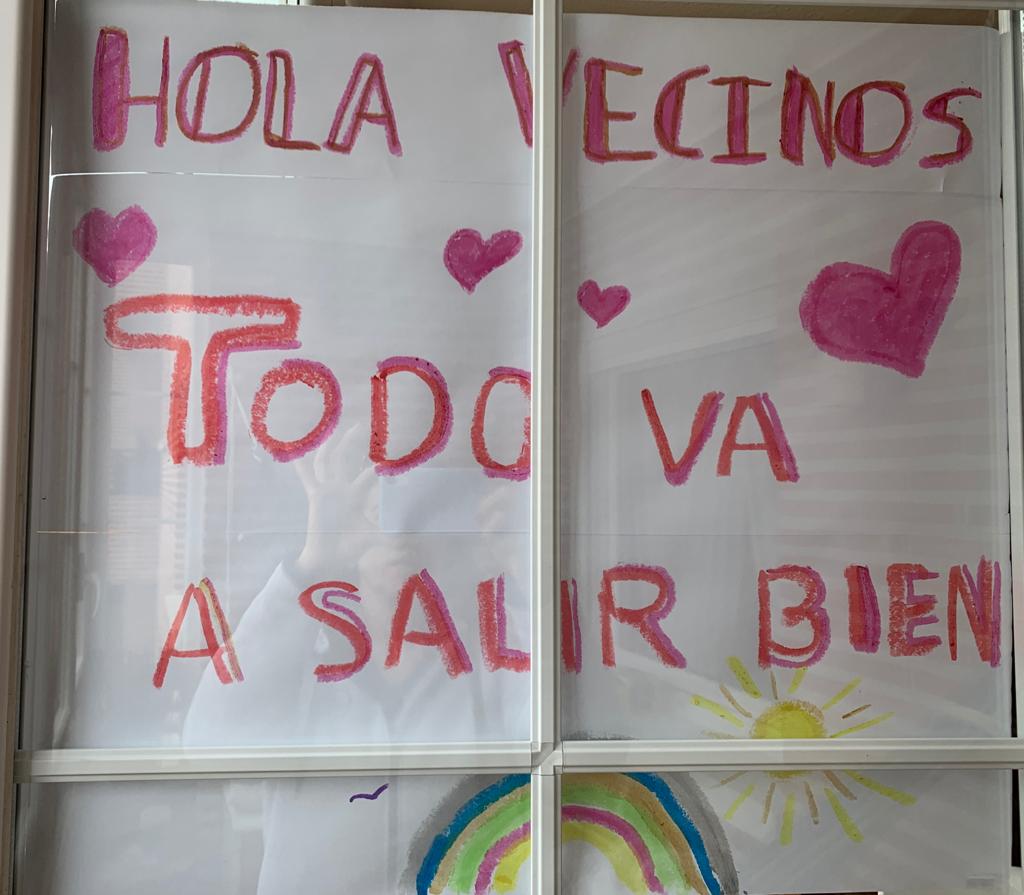 HOLA VECINOS
TODO VA
A SALIR BIEN